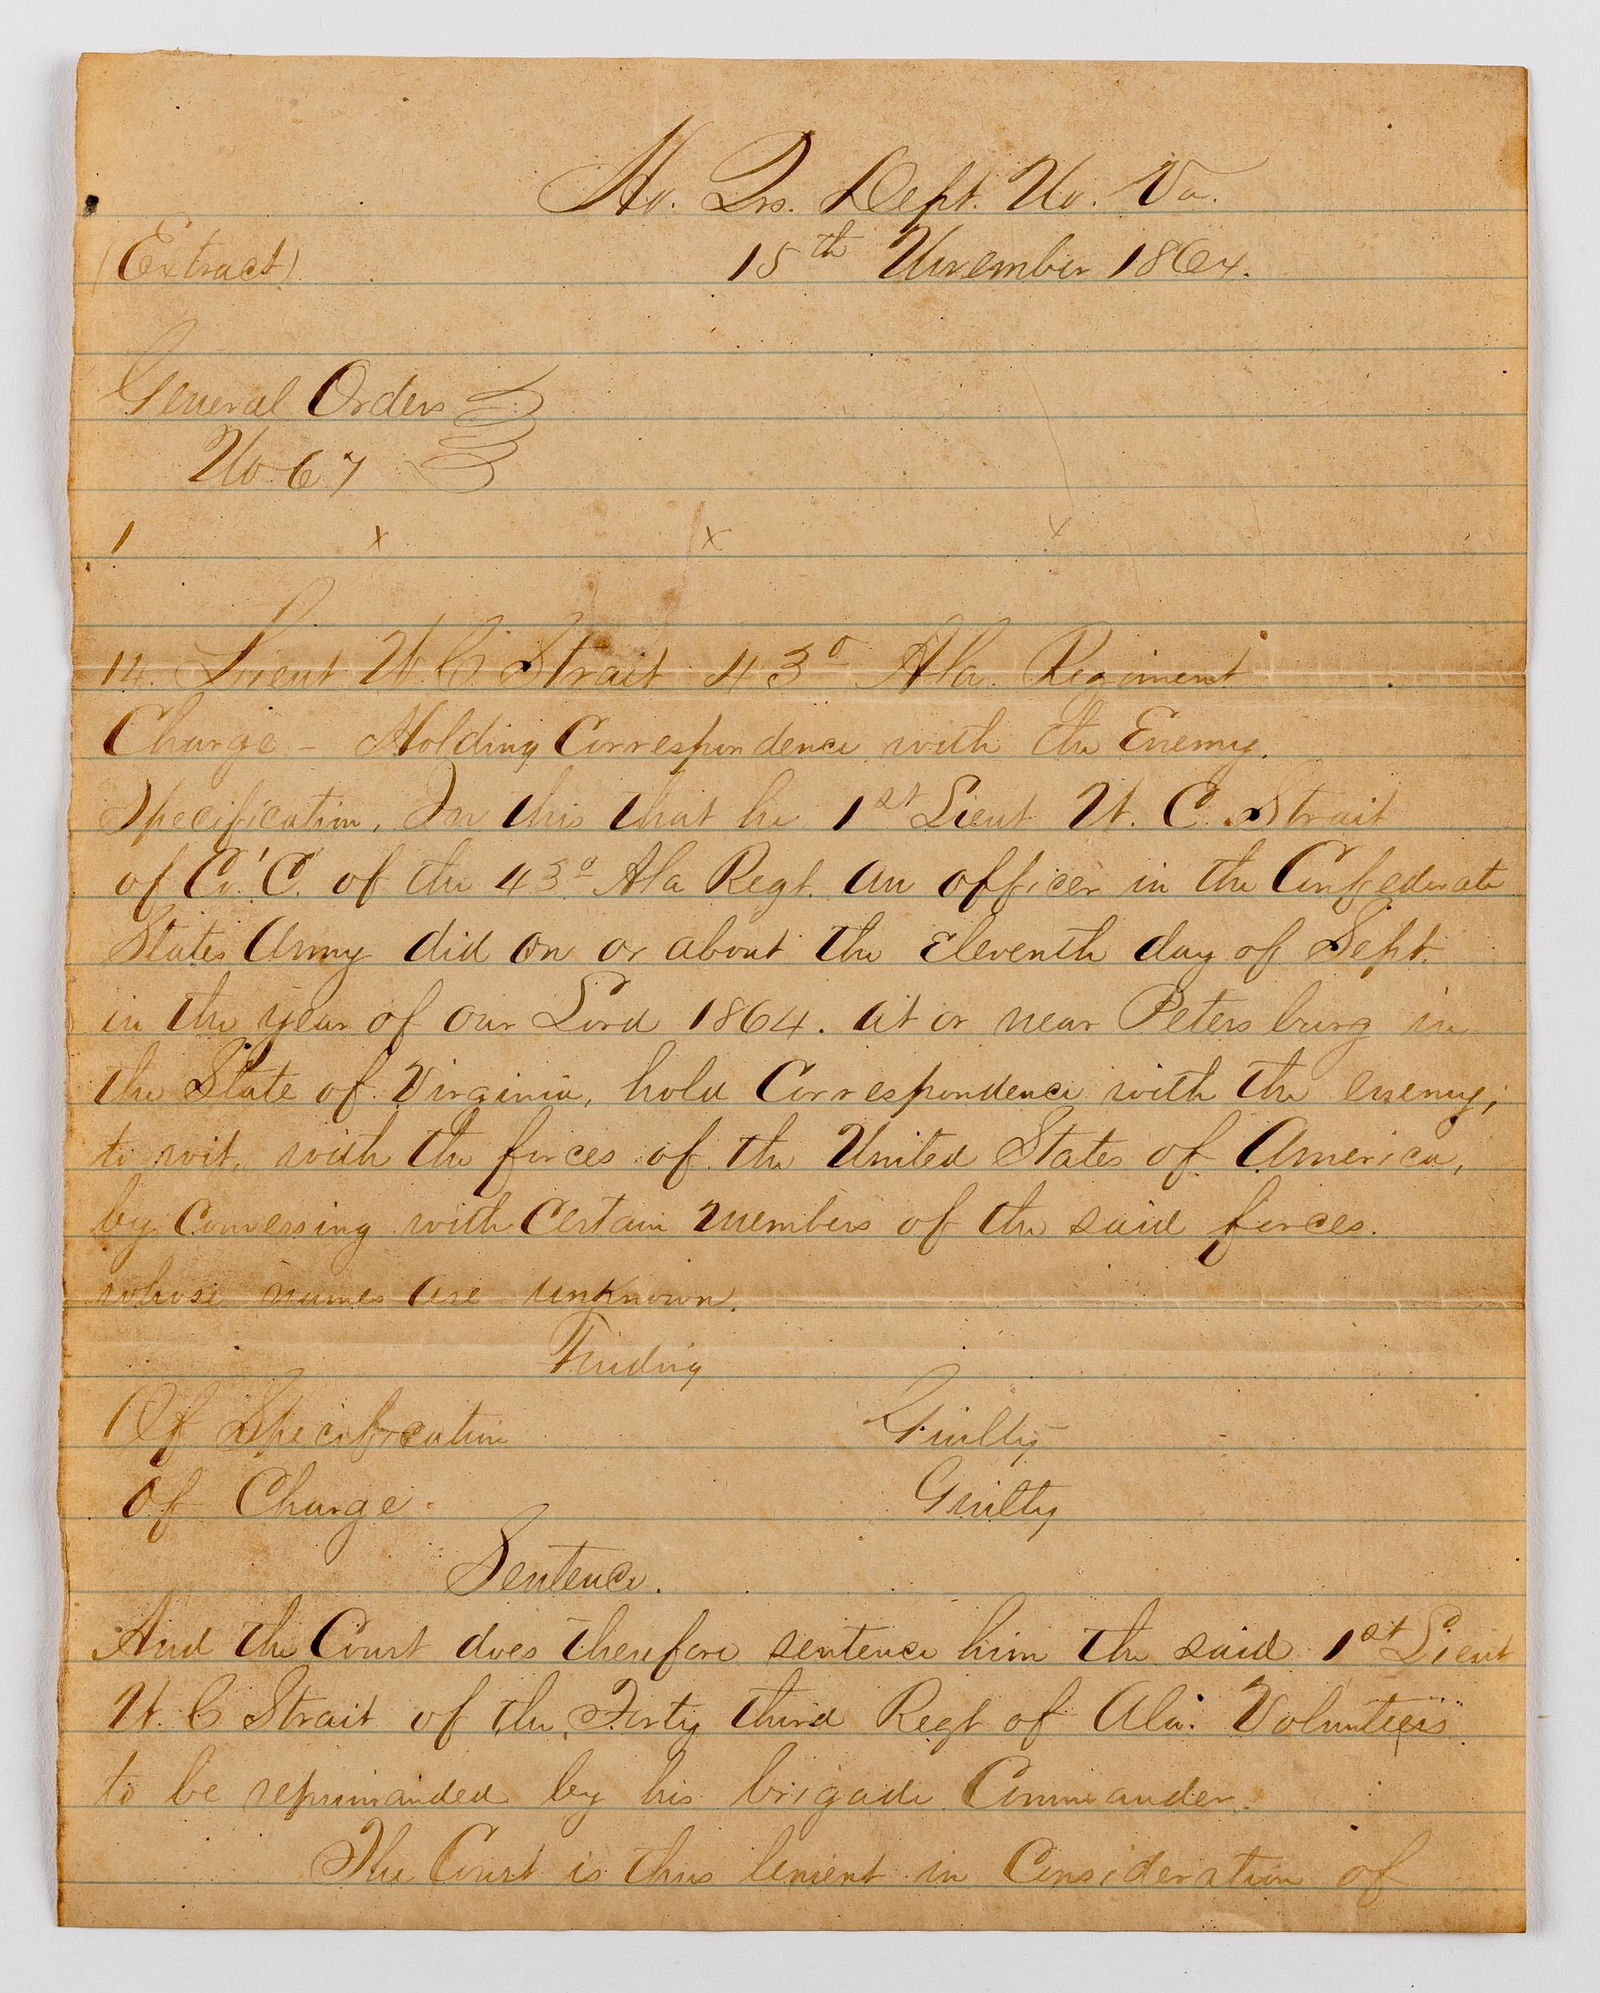 Hd. Qrs. Dept. No. Va.
(Extract) 15th November 1864.
General Orders
No 67
1 x x x
14. Lieut W. C. Strait 43d Ala. Regiment
Charge - Holding Correspondence with the Enemy.
Specification, In this that he 1st Lieut W. C. Strait
of Co. 'C' of the 43d Ala Regt. an officer in the Confederate
States Army did on or about the Eleventh day of Sept.
in the year of our Lord 1864. at or near Petersburg in
the State of Virginia, hold Correspondence with the enemy;
to wit, with the forces of the United States of America,
by Conversing with Certain Members of the said forces.
whose names are unknown.
Finding
Of Specification Guilty
Of Charge Guilty
Sentence.
And the Court does therefore sentence him the said 1st Lieut
W. C Strait of the Forty third Regt of Ala. Volunteers
to be reprimanded by his brigade Commander.
The Court is thus lenient in Consideration of